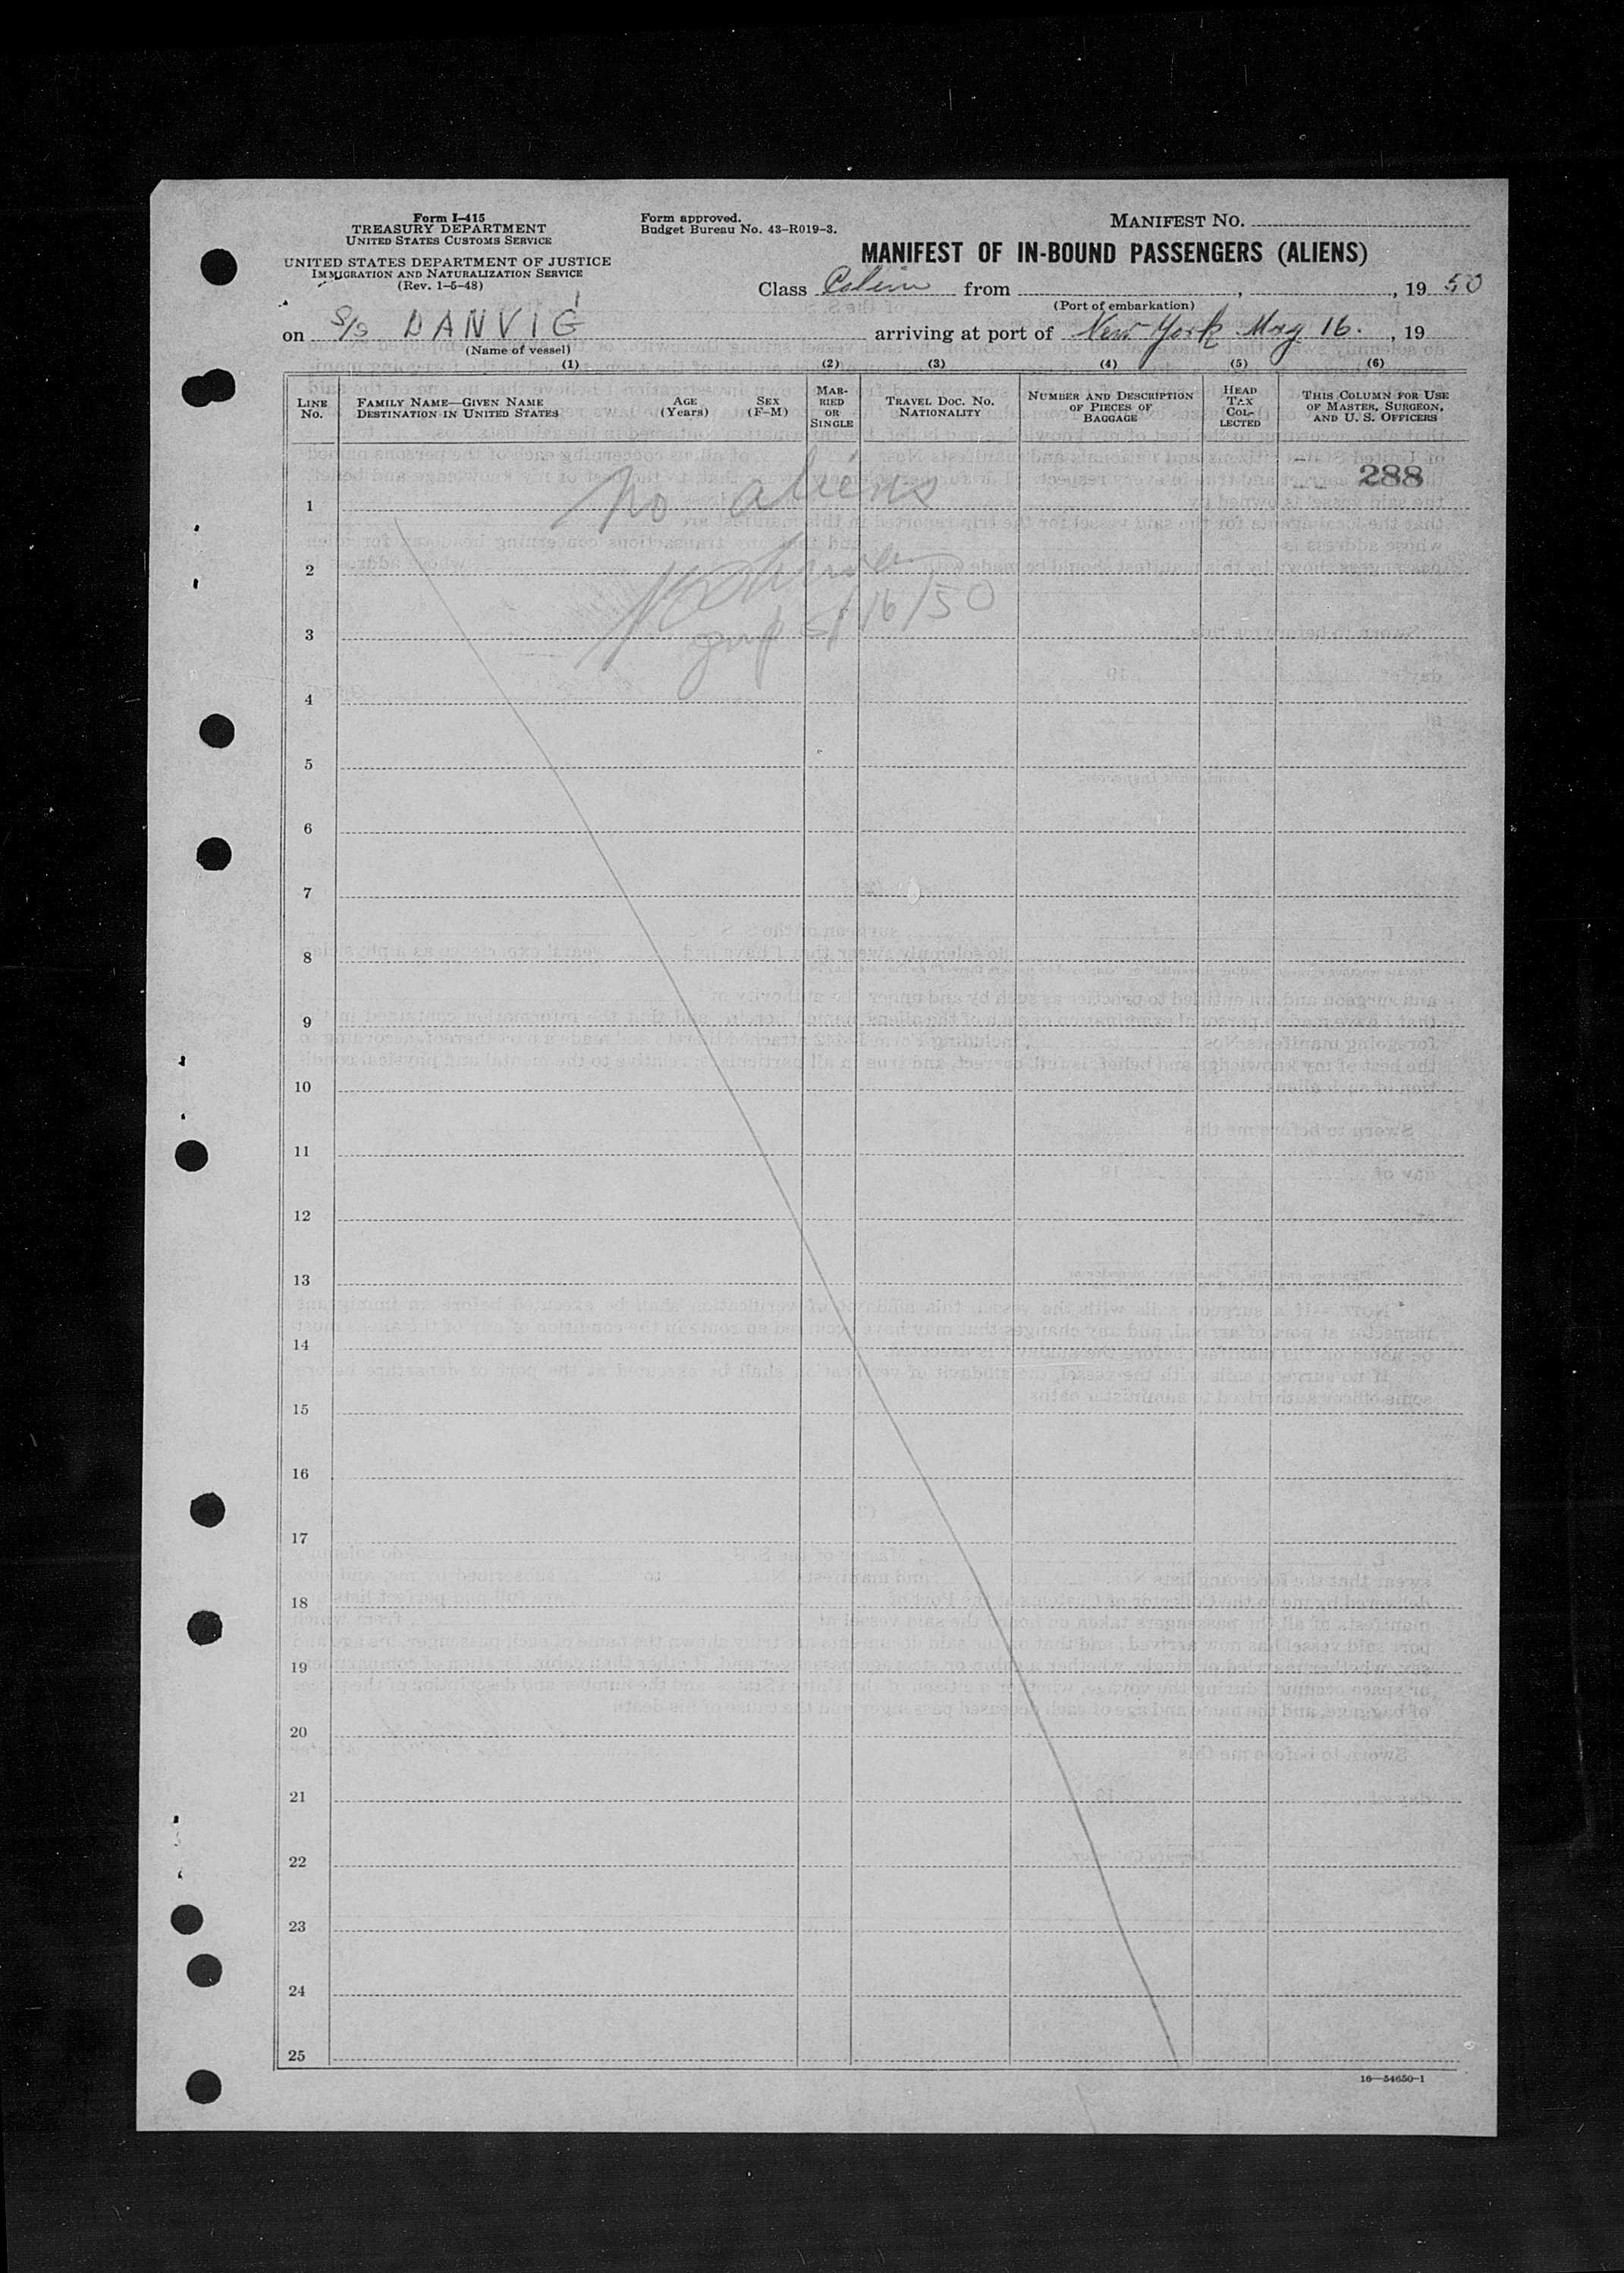 Form I-415
TREASURY DEPARTMENT
UNITED STATES CUSTOMS SERVICE
UNITED STATES DEPARTMENT OF JUSTICE
IMMIGRATION AND NATURALIZATION SERVICE
(Rev. 1-5-48)
Form approved.
Budget Bureau No. 43-R019-3.
MANIFEST NO.
MANIFEST OF IN-BOUND PASSENGERS (ALIENS)
Class from , , 19 50
(Port of embarkation)
on S/S DANVIG arriving at port of New York May 16. , 19
(Name of vessel)
(1) (2) (3) (4) (5) (6)
LINE No.
FAMILY NAME—GIVEN NAME
DESTINATION IN UNITED STATES
AGE (Years)
SEX (F-M)
MARRIED OR SINGLE
TRAVEL DOC. NO. NATIONALITY
NUMBER AND DESCRIPTION OF PIECES OF BAGGAGE
HEAD TAX COLLECTED
THIS COLUMN FOR USE OF MASTER, SURGEON, AND U. S. OFFICERS
288
1 no aliens
2
5/16/50
3
4
5
6
7
8
9
10
11
12
13
14
15
16
17
18
19
20
21
22
23
24
25
16—54650-1